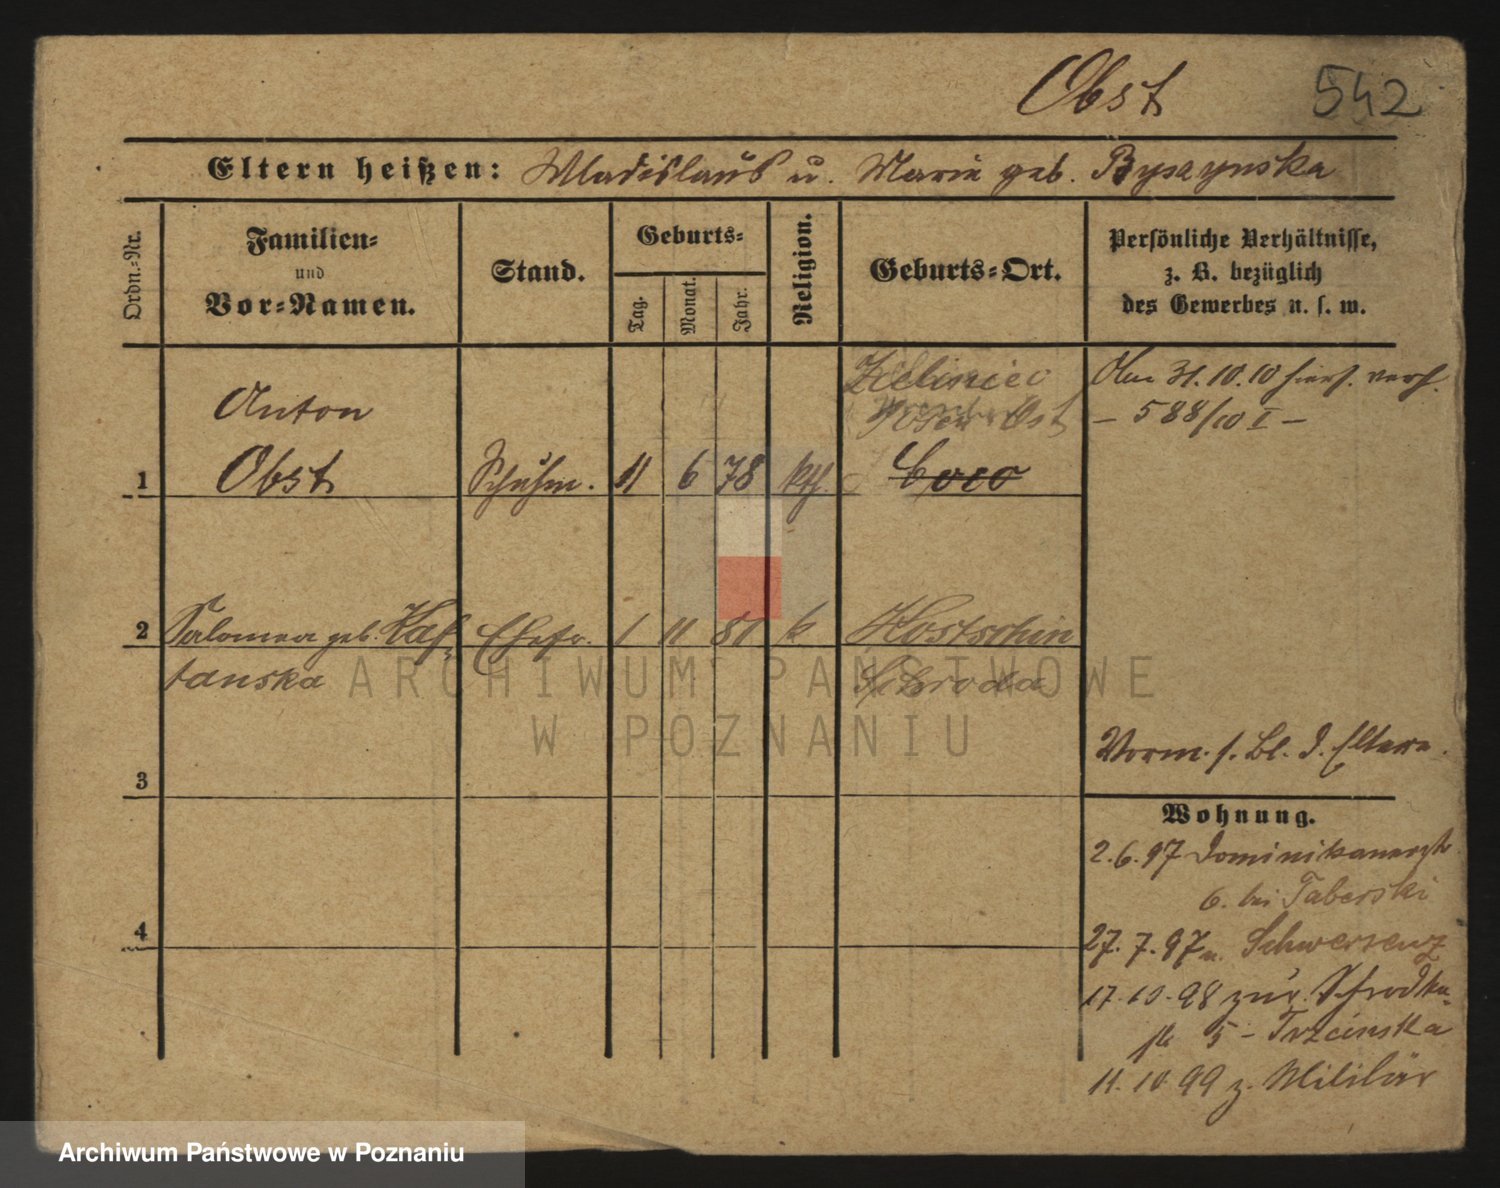 Obst 542
Eltern heißen: Wladislaus u. Marie geb. Byszynska
Ordn.-Nr.
Familien-
und
Vor-Namen.
Stand.
Geburts-
Tag.
Monat.
Jahr.
Religion.
Geburts-Ort.
Persönliche Verhältnisse,
z. B. bezüglich
des Gewerbes u. s. w.
Zieliniec
Posen Ost
Am 31.10.10 hiers. verh.
- 588/10 I -
Anton
1 Obst Schuhm. 11 6 78 kth.
2 Salomea geb. Kaf- Ehefr. 1 11 81 k Kostschin
tanska Schroda
ARCHIWUM PAŃSTWOWE
W POZNANIU
Vorm. s. Bl. d. Eltern.
3
Wohnung.
2.6.97 Dominikanerstr.
6. bei Taberski
4
27.7.97 n. Schwersenz
17.10.98 zur. Schrodka-
5 - Trzcinska
11.10.99 z. Militär
Archiwum Państwowe w Poznaniu